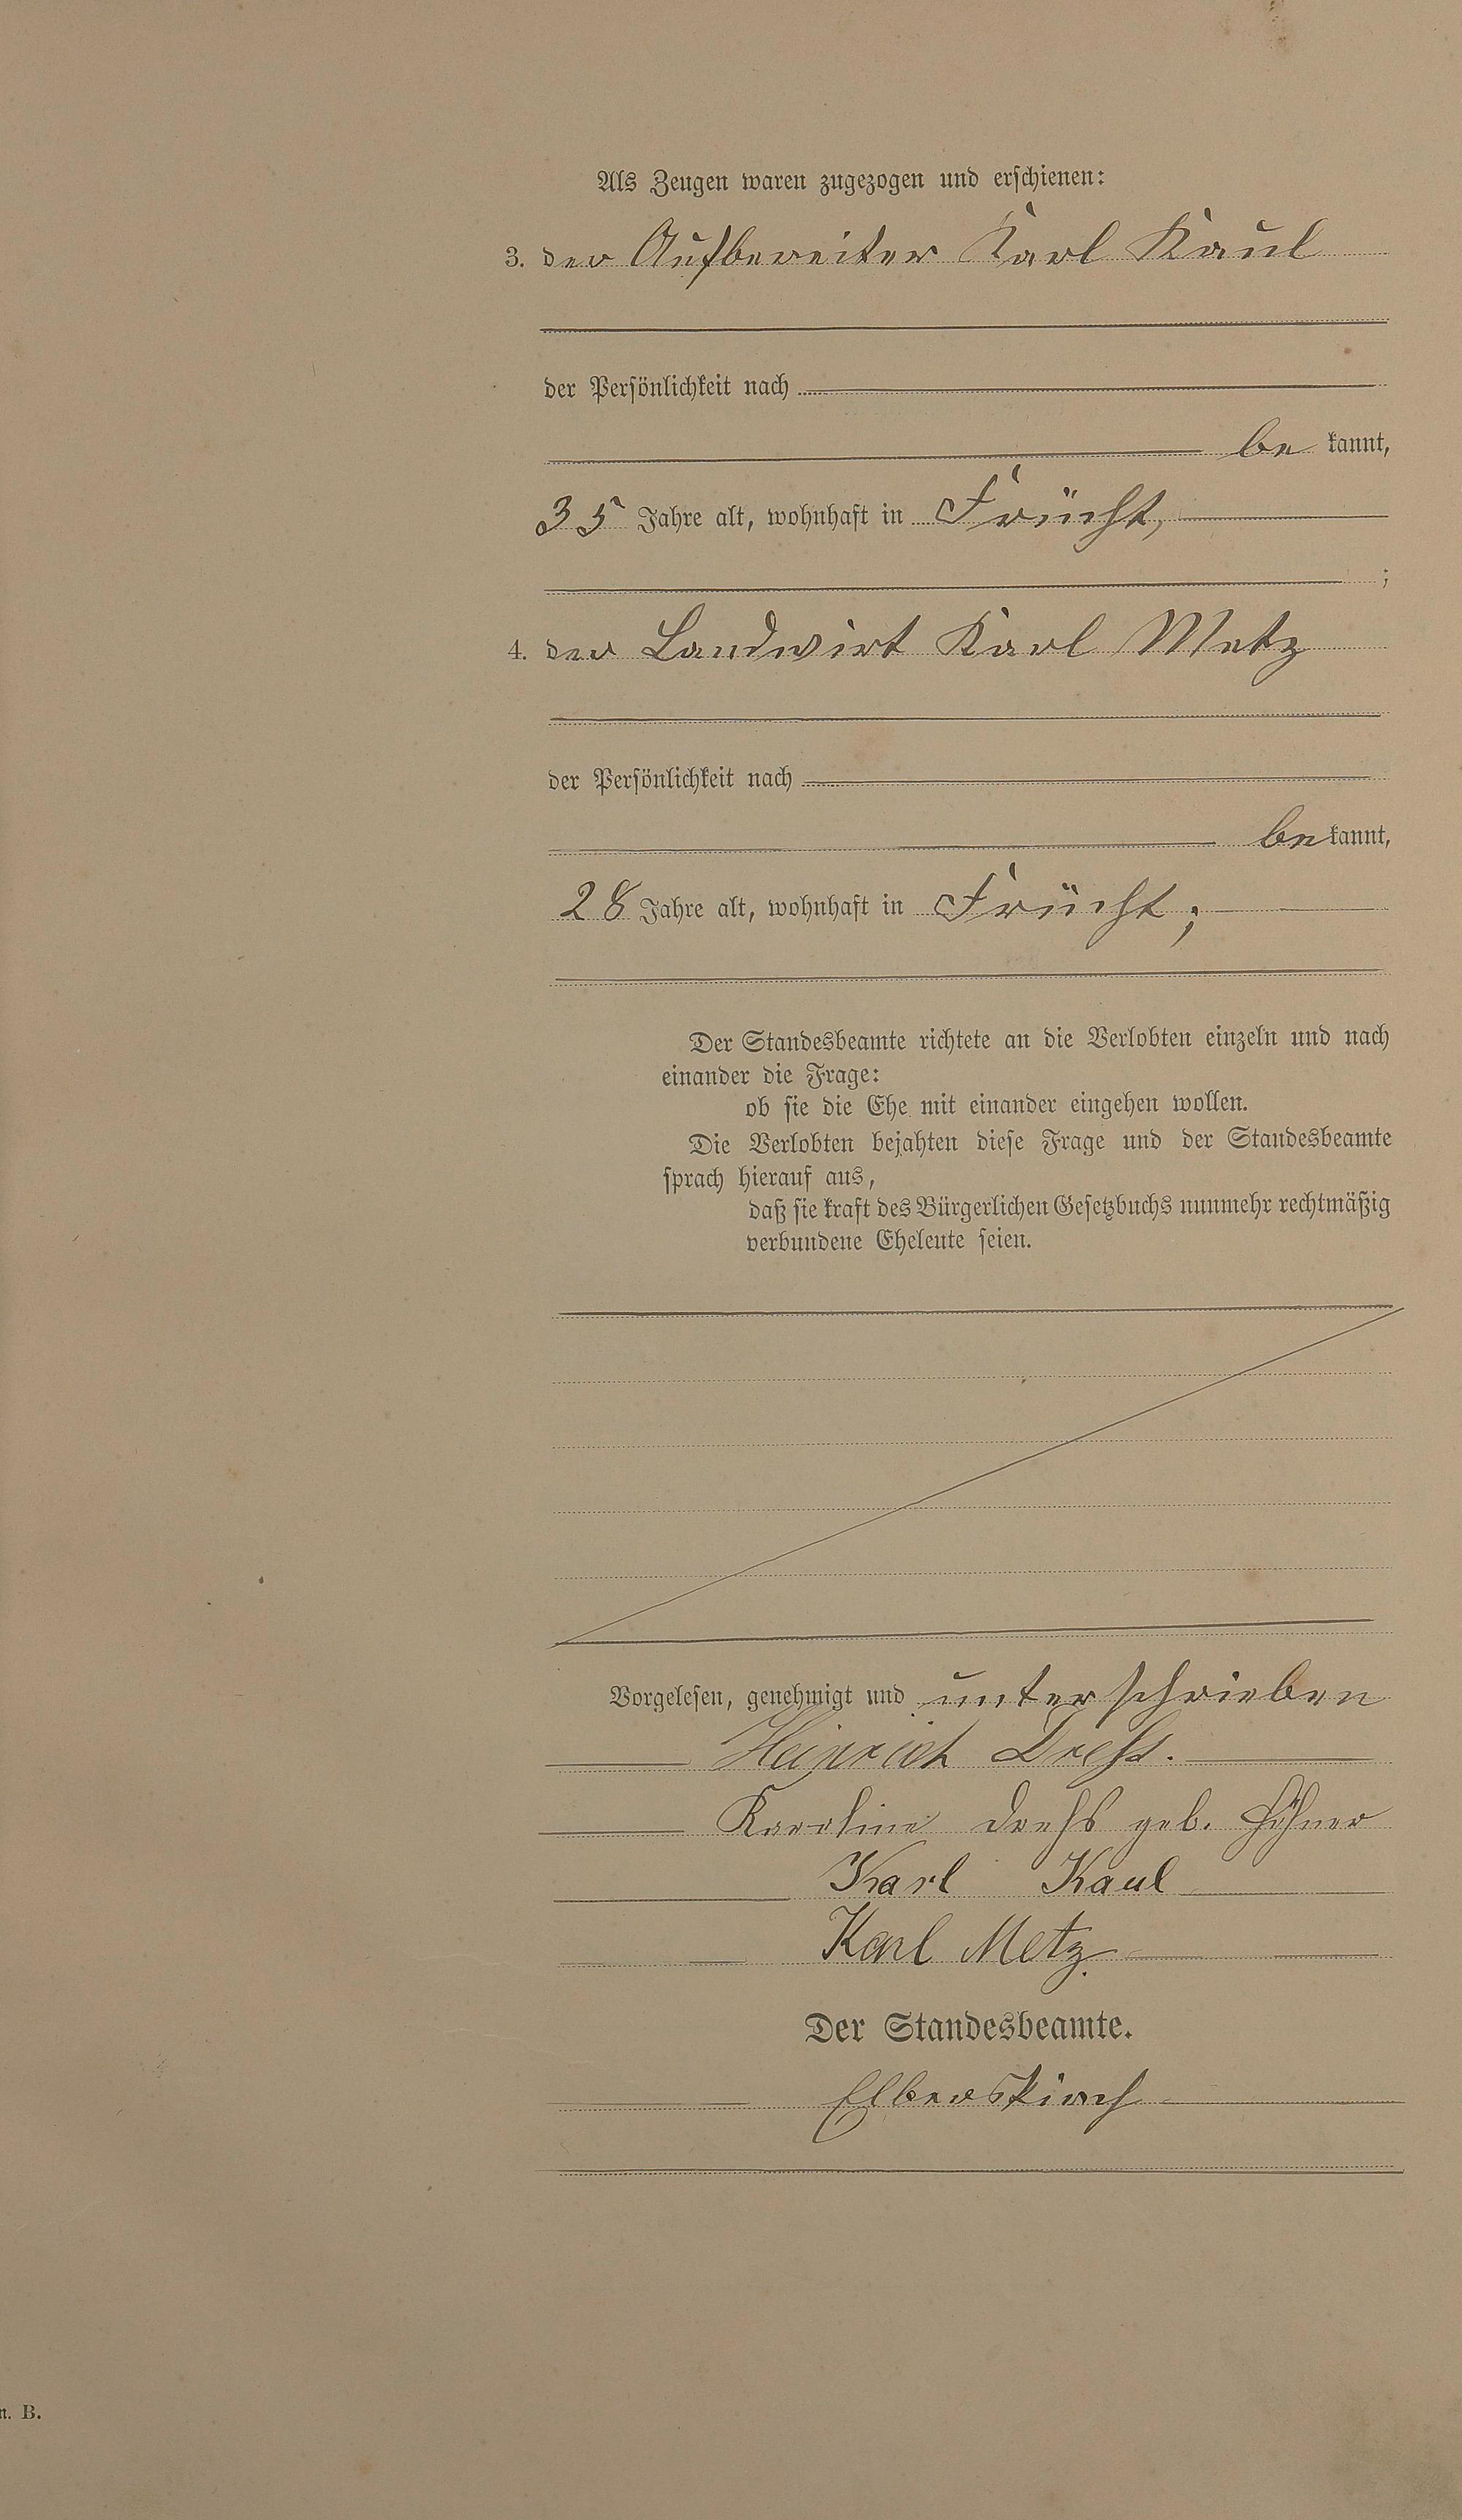 Als Zeugen waren zugezogen und erschienen:
3. der Aufbereiter Karl Kaul
der Persönlichkeit nach
be kannt,
35 Jahre alt, wohnhaft in Frücht,
;
4. der Landwirt Karl Metz
der Persönlichkeit nach
be kannt,
28 Jahre alt, wohnhaft in Frücht;
Der Standesbeamte richtete an die Verlobten einzeln und nach
einander die Frage:
ob sie die Ehe mit einander eingehen wollen.
Die Verlobten bejahten diese Frage und der Standesbeamte
sprach hierauf aus,
daß sie kraft des Bürgerlichen Gesetzbuchs nunmehr rechtmäßig
verbundene Eheleute seien.
Vorgelesen, genehmigt und unterschrieben
Heinrich Drehs.
Karoline Drehs geb.
Karl Kaul
Karl Metz.
Der Standesbeamte.
Elberskirch
n. B.